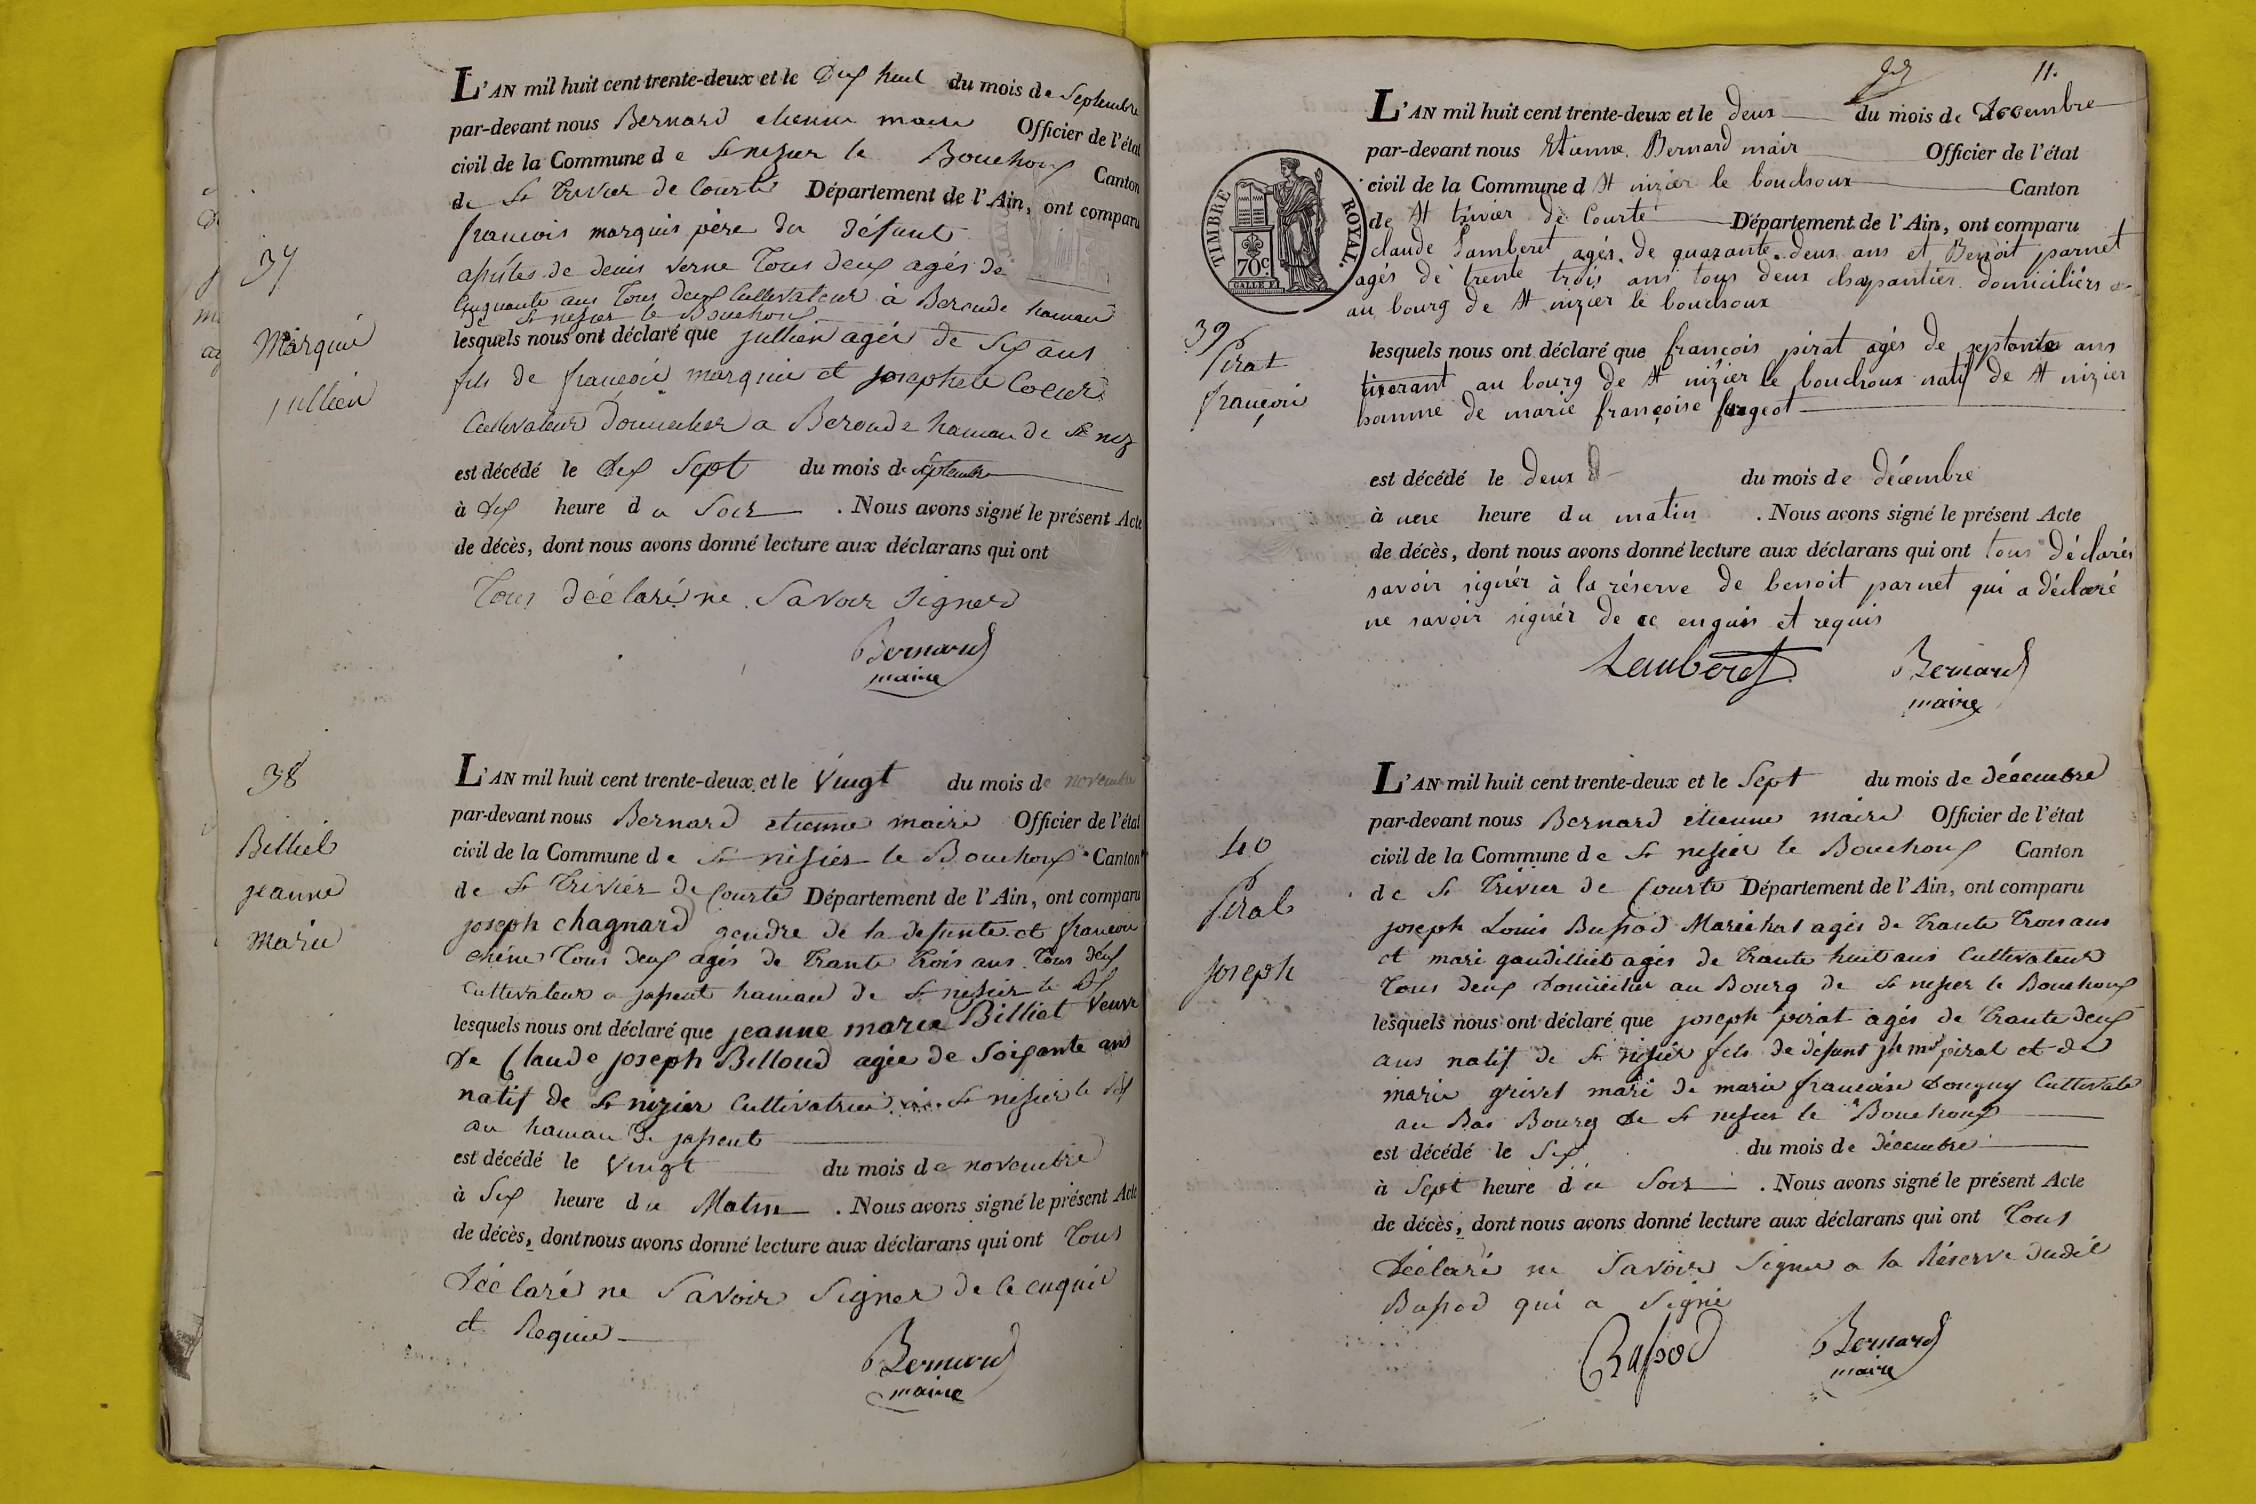 37
Marquis
jullien
L'AN mil huit cent trente-deux et le Dix huit du mois de Septembre
par-devant nous Bernard etienne maire Officier de l'état
civil de la Commune de St nizier le Bouchoux Canton
de St Trivier de Courte Département de l'Ain, ont comparu
francois marquis père du défunt
assistes de denis verne Tous deux agés de
Cinquante ans Tous deux Cultivateur à Beroude hamau
de St nesier le Bouchoux
lesquels nous ont déclaré que jullien agés de Six ans
fils de francois marquis et josephete Coeur
Cultivateur Domicilier a Beroude hamau de St niz
est décédé le dix Sept du mois de Septembre
à dix heure du Soir . Nous avons signé le présent Acte
de décès, dont nous avons donné lecture aux déclarans qui ont
Tous déclaré ne Savoir Signer
Bernard
maire
38
Billiet
jeanne
marie
L'AN mil huit cent trente-deux et le Vingt du mois de novembre
par-devant nous Bernard etienne maire Officier de l'état
civil de la Commune de St nisier le Bouchoux Canton
de St Trivier de Courte Département de l'Ain, ont comparu
joseph chagnard gendre de la defunte et francois
chêne Tous deux agés de Trante Trois ans Tous deux
Cultivateur a jassent hamau de St nesier le Bx
lesquels nous ont déclaré que jeanne marie Billiet Veuve
de Claude joseph Billoud agée de Soixante ans
natif de St nizier Cultivatrice St nesier le Bx
au hamau de jassent
est décédé le Vingt du mois de novembre
à Six heure du Matin . Nous avons signé le présent Acte
de décès, dont nous avons donné lecture aux déclarans qui ont Tous
déclaré ne Savoir Signer de Ce enquis
et Requis
Bernard
maire
11.
TIMBRE ROYAL.
70c
39
Pirat
françois
L'AN mil huit cent trente-deux et le deux du mois de décembre
par-devant nous Etienne Bernard mair Officier de l'état
civil de la Commune d St nizier le bouchoux Canton
de St trivier de Courte Département de l'Ain, ont comparu
claude Lamberet agés de quarante deux ans et Benoit parnet
agés de trente trois ans tous deux chapantier domiciliérs
au bourg de St nizier le bouchoux
lesquels nous ont déclaré que françois pirat agés de septante ans
tixerant au bourg de St nizier le bouchoux natif de St nizier
homme de marie françoise fargeot
est décédé le deux du mois de décembre
à une heure du matin . Nous avons signé le présent Acte
de décès, dont nous avons donné lecture aux déclarans qui ont tous déclarés
savoir signér à la réserve de benoit parnet qui a déclaré
ne savoir signér de ce enquis et requis
Lamberet
Bernard
maire
40
Pirat
joseph
L'AN mil huit cent trente-deux et le Sept du mois de décembre
par-devant nous Bernard etienne maire Officier de l'état
civil de la Commune de St nesier le Bouchoux Canton
de St Trivier de Courte Département de l'Ain, ont comparu
joseph Louis Bussod Maréchal agés de Trante Trois ans
et mari gaudilliet agés de Trante huit ans Cultivateur
Tous deux Domicilier au Bourg de St nesier le Bouchoux
lesquels nous ont déclaré que joseph pirat agés de Trante deux
ans natif de St nizier fils de defunt jh mie pirat et de
marie grivet mari de marie francoise Donguy Cultivate
au Bas Bourg de St nesier le Bouchoux
est décédé le Six du mois de décembre
à Sept heure du Soir . Nous avons signé le présent Acte
de décès, dont nous avons donné lecture aux déclarans qui ont Tous
déclaré ne Savoir Signer a la Réserve dudit
Bussod qui a Signé
Bussod
Bernard
maire